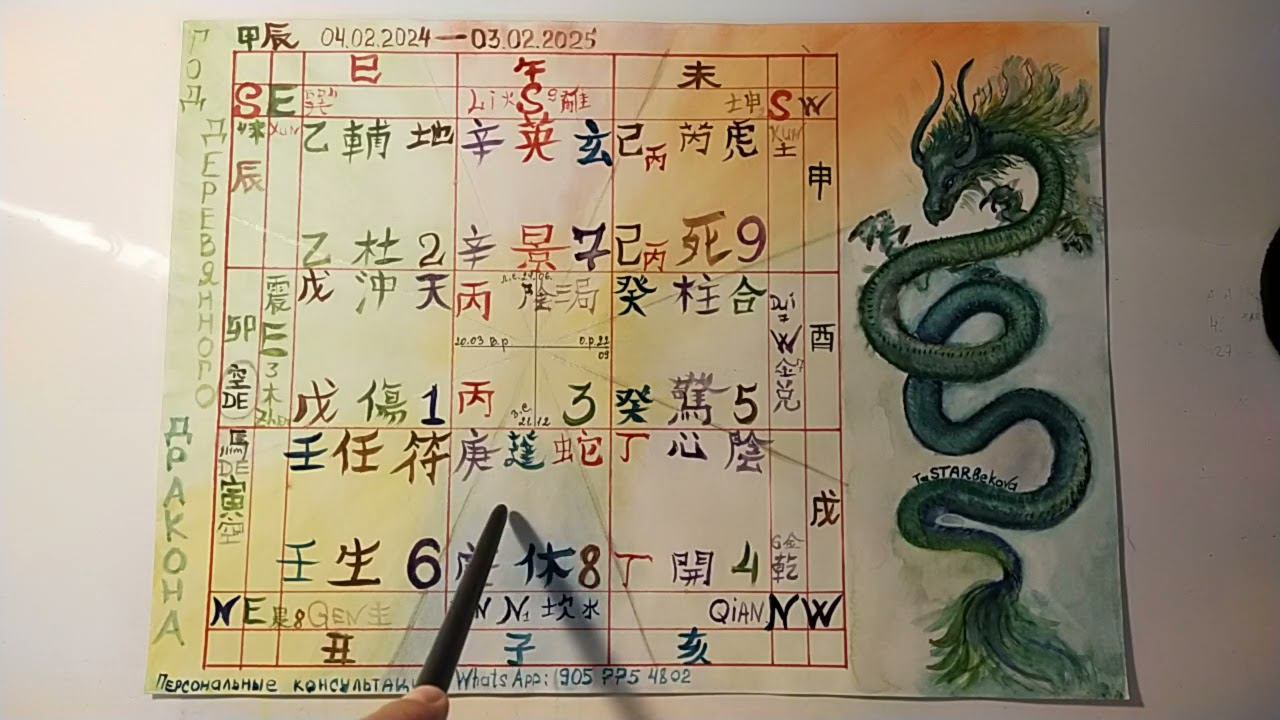 甲辰 04.02.2024—03.02.2025
ГОД
ДЕРЕВЯННОГО
ДРАКОНА
巳 午 未
S E Li 火 S 9 離 坤 S W
XUN KUN 土
乙 輔 地 辛 英 玄 己 丙 芮 虎
辰 申
乙 杜 2 辛 景 7 己 丙 死 9
戊 沖 天 丙 陰 三局 癸 柱 合
震 卯 E 3 木 Zhen
Dui 7 W 金 兑 酉
20.03 в.р о.р 22 09
空 DE
戊 傷 1 丙 з.с. 21.12 3 癸 驚 5
馬 DE 寅 空
壬 任 符 庚 蓬 蛇 丁 心 陰
戌
壬 生 6 休 8 丁 開 4
6 金 乾
N E 8 GEN 土 N 1 坎 水 QIAN N W
丑 子 亥
TaSTARBekova
Персональные WhatsApp: 905 775 4802